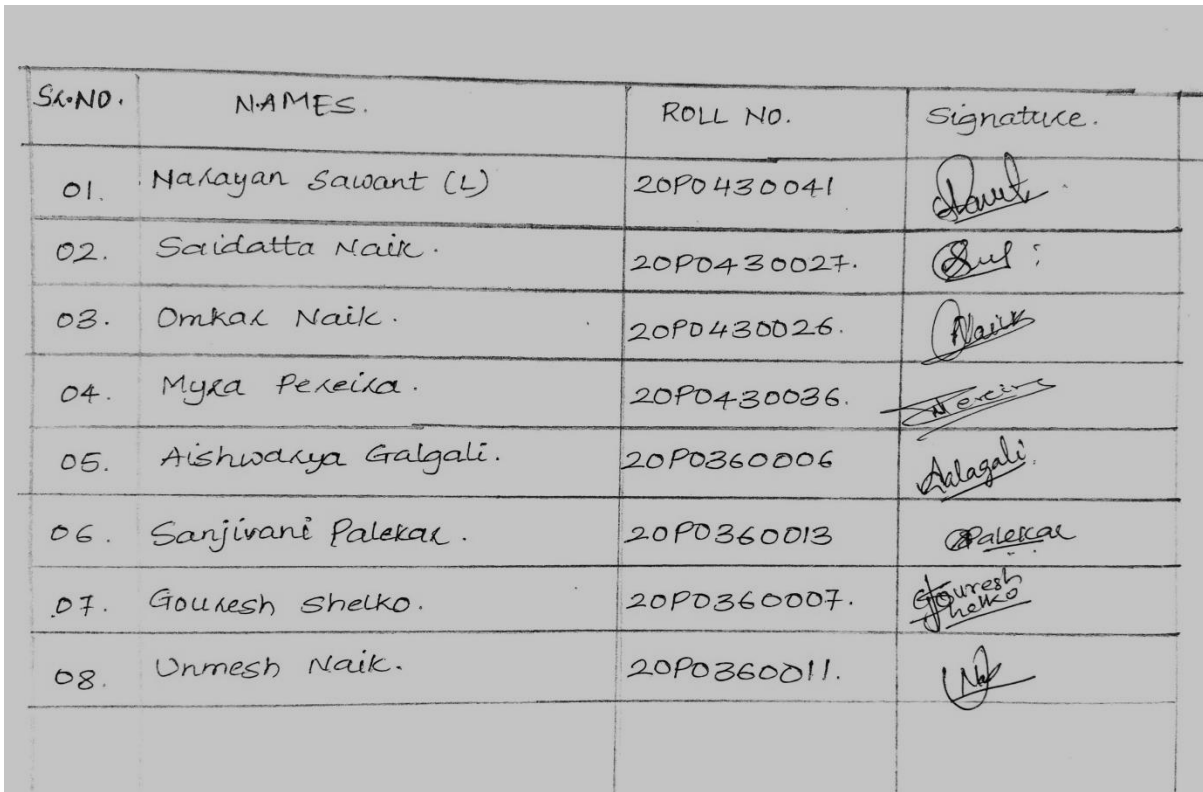 Sr.NO. NAMES. ROLL NO. Signature.
01. Narayan Sawant (L) 20P0430041
02. Saidatta Naik. 20P0430027.
03. Omkar Naik. 20P0430026. Naik
04. Myra Pereira. 20P0430036.
05. Aishwarya Galgali. 20P0360006
06. Sanjivani Palekar. 20P0360013 Palekar
07. Gouresh Shelko. 20P0360007. Gouresh Shelko
08. Unmesh Naik. 20P0360011.